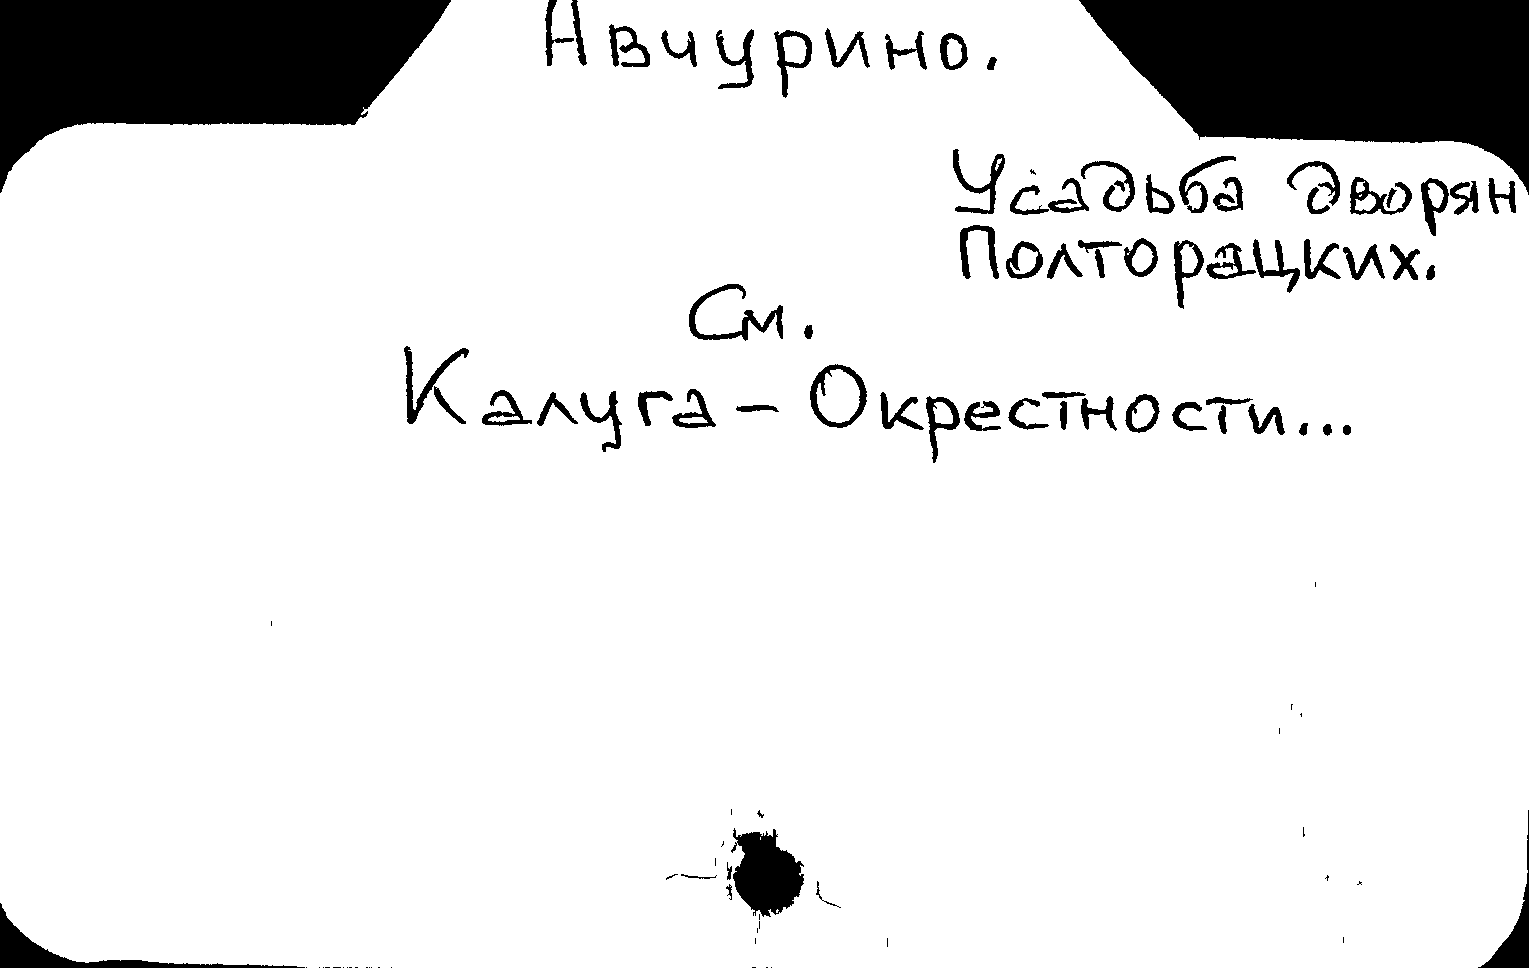 Авчурино.
Усадьба дворян
Полторацких.
См.
Калуга - Окрестности...